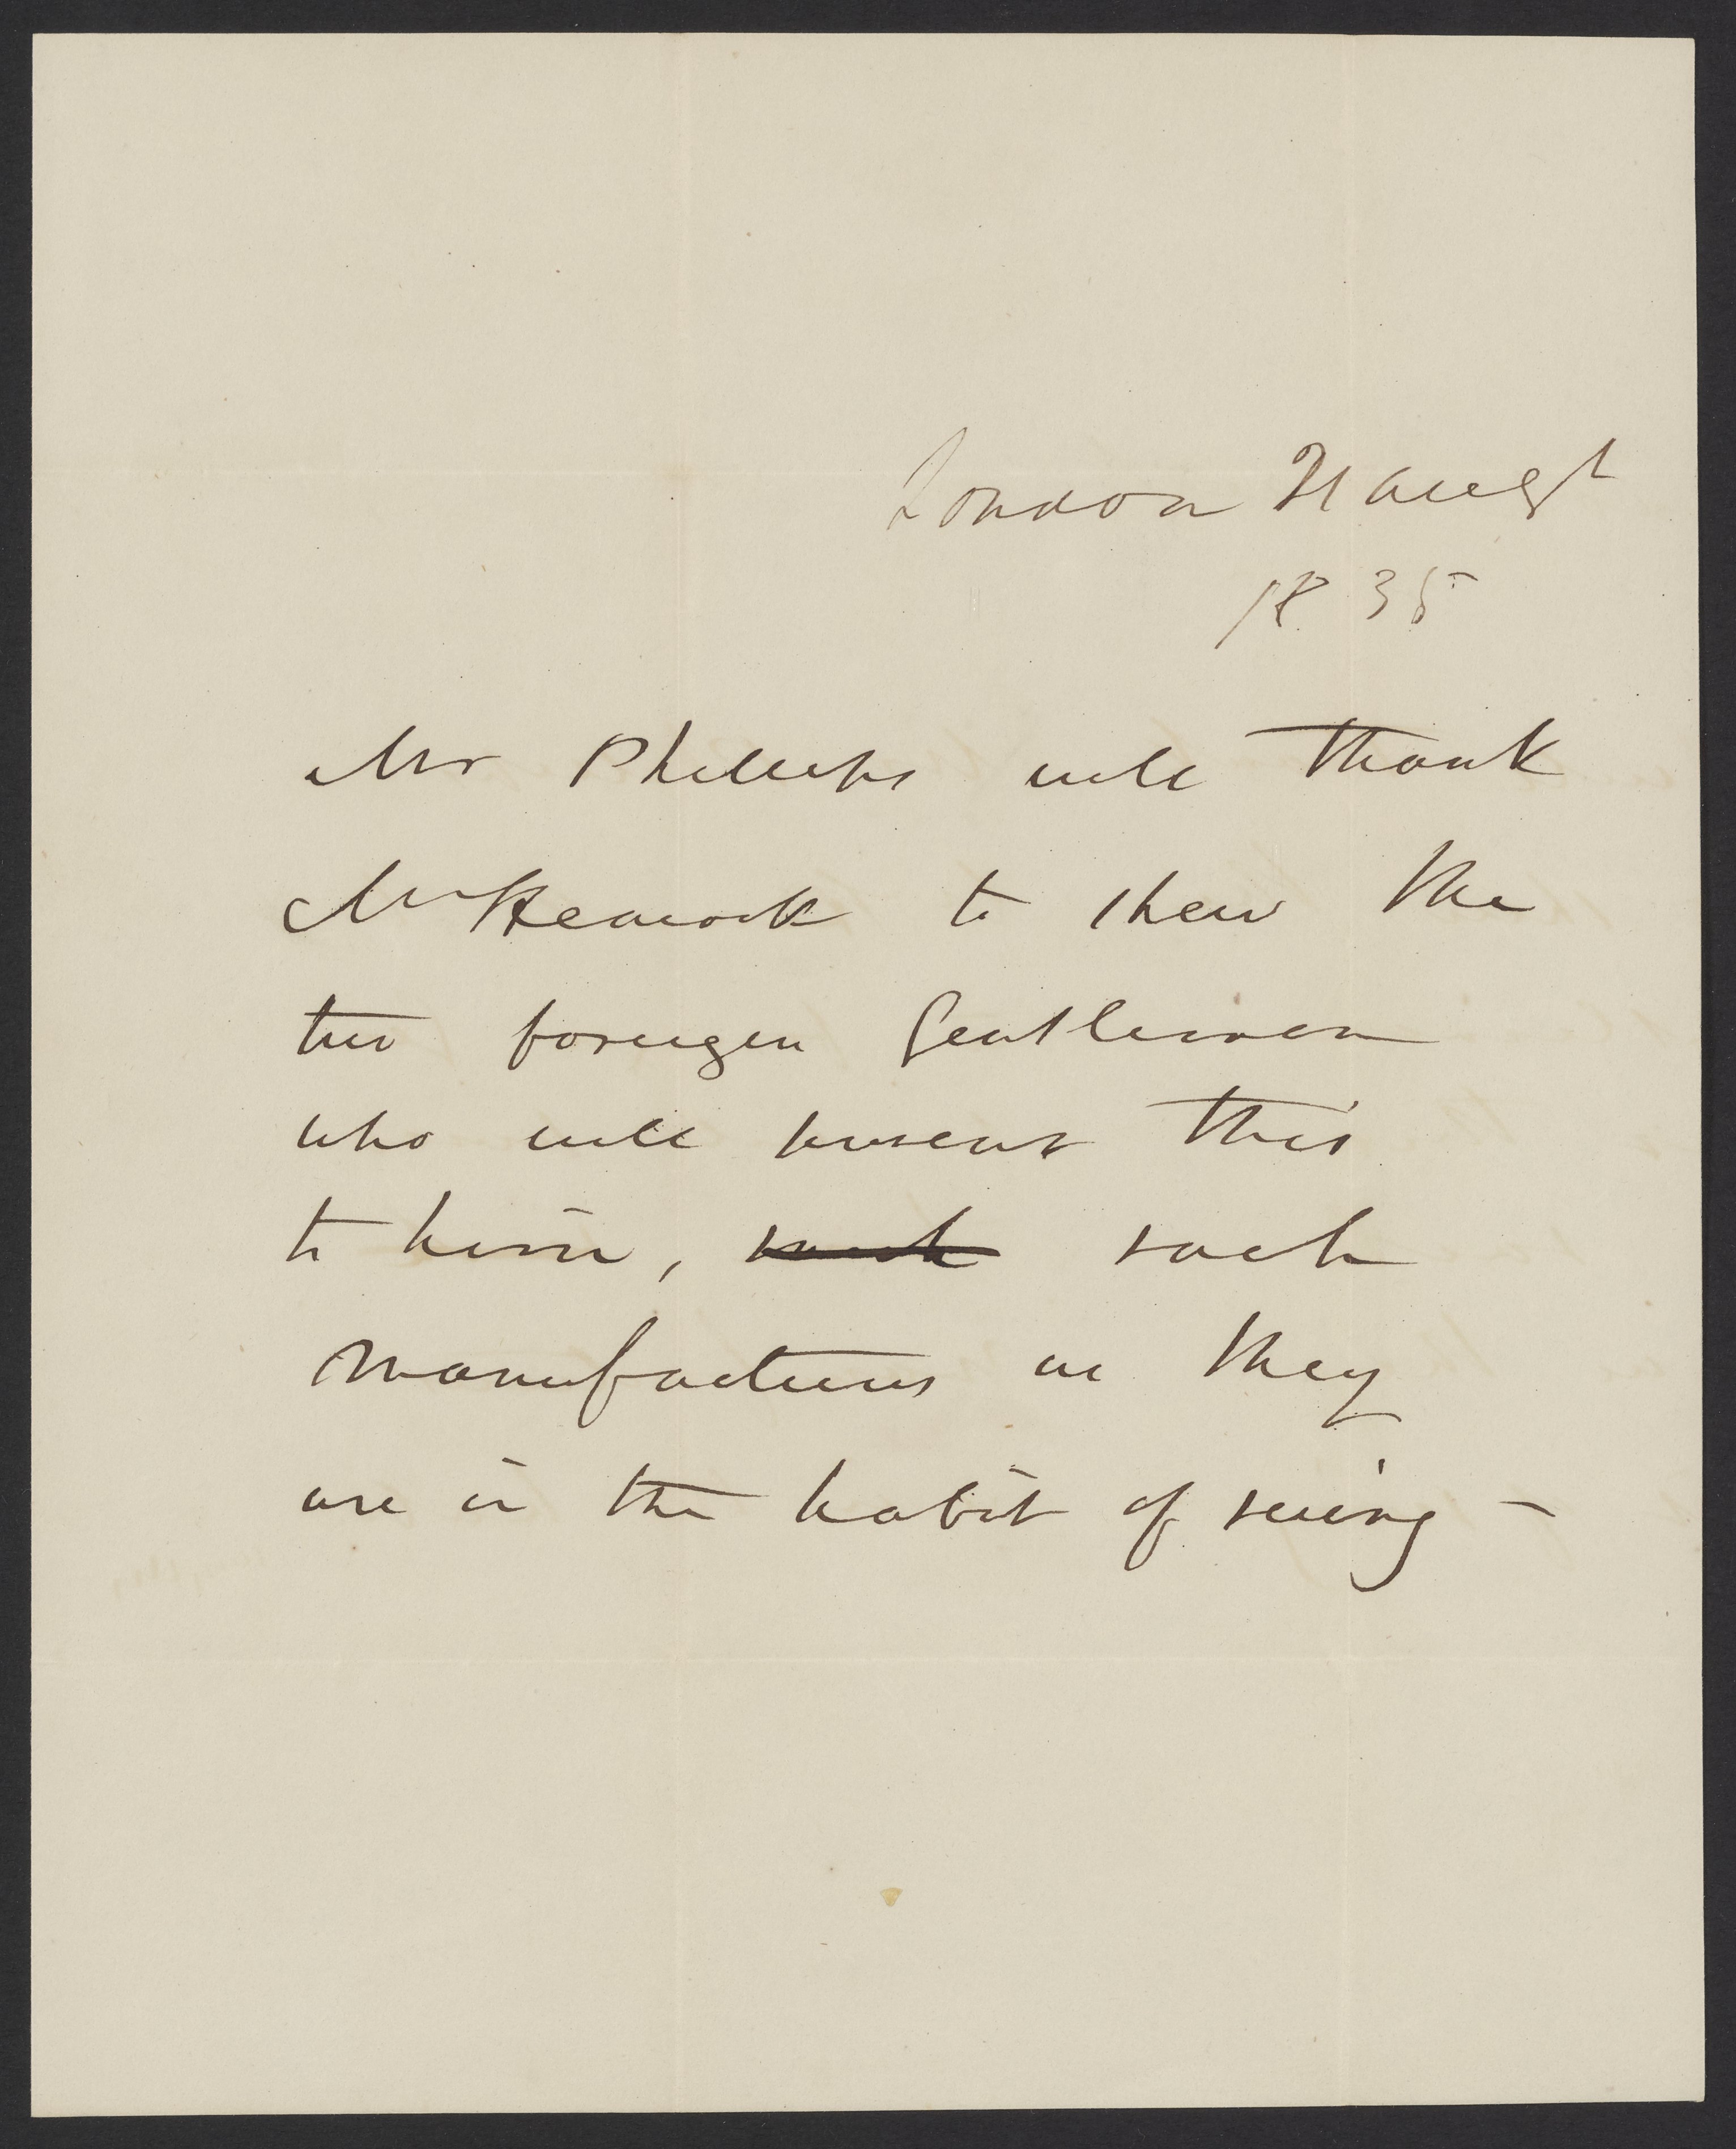 London 21 Augst
1835
Mr Phillips will thank
Mr to shew the
two foreign Gentlemen
who will present this
to him, such
manufactures as they
are in the habit of seeing –